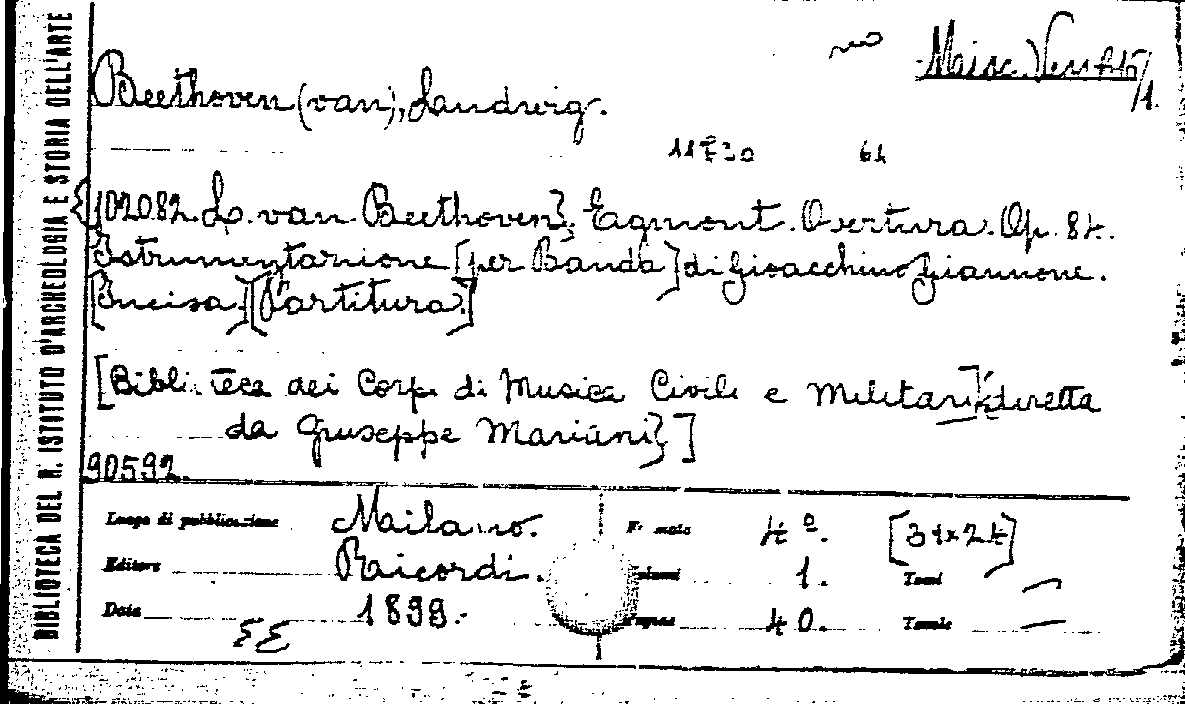 BIBLIOTECA DEL R. ISTITUTO D'ARCHEOLOGIA E STORIA DELL'ARTE
Misc. Vent. 45/1.
Beethoven (van), Ludwig.
11 E 30 61
{102082. L. van Beethoven}. Egmont. Overtura. Op. 84.
Istrumentazione [per Banda] di Gioacchino Giannone.
[Incisa] [Partitura.]
[Biblioteca dei Corpi di Musica Civili e Militari, diretta
da Giuseppe Mariani}]
90592.
Luogo di pubblicazione Milano. Formato 4º. [34x24]
Editore Ricordi. Volumi 1. Tomi —
Data 1899. Pagine 40. Tavole —